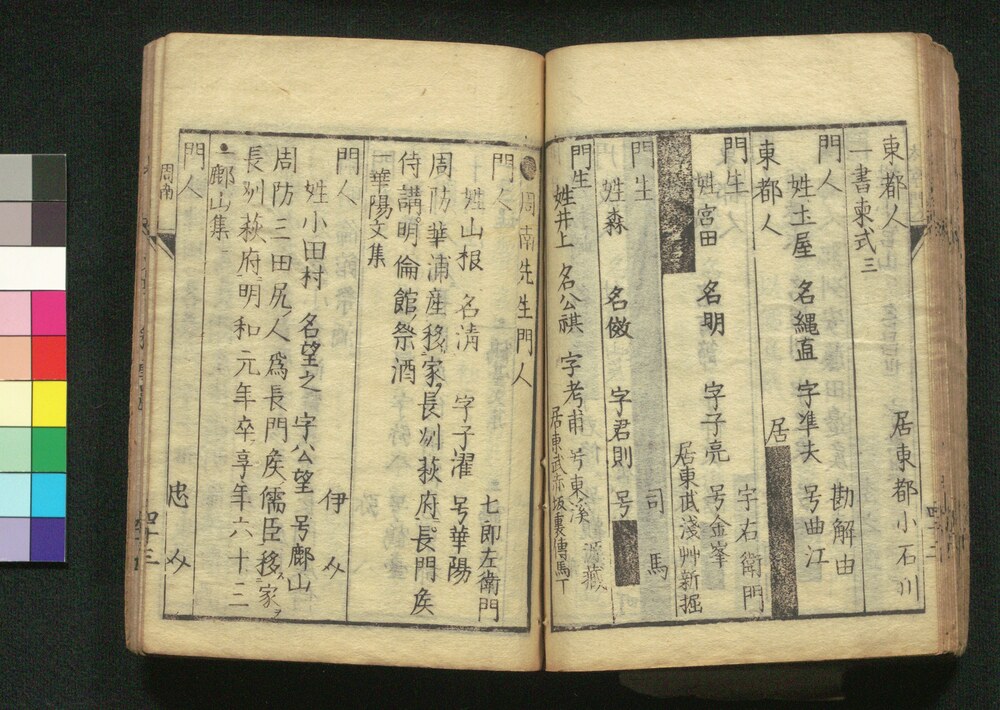 東都人　居東都小石川
一書東式三
門人　勘解由
姓土屋　名縄直　字準夫　号曲江
東都人　居
門生　字右衛門
姓宮田　名明　字子亮　号金峯
居東武淺艸新掘
門生　司馬
姓森　名倣　字君則　号
門生　源藏
姓井上　名公祺　字考甫　号東溪
居東武赤坂裏傳馬丁
周南先生門人
門人　七郎左衛門
姓山根　名清　字子濯　号華陽
周防華浦産移家長州萩府長門矦
侍講明倫館祭酒
一華陽文集
門人　伊
姓小田村　名望之　字公望　号鄜山
周防三田尻人爲長門矦儒臣移家
長州萩府明和元年卒享年六十二
一鄜山集
門人　忠
周南
四十三